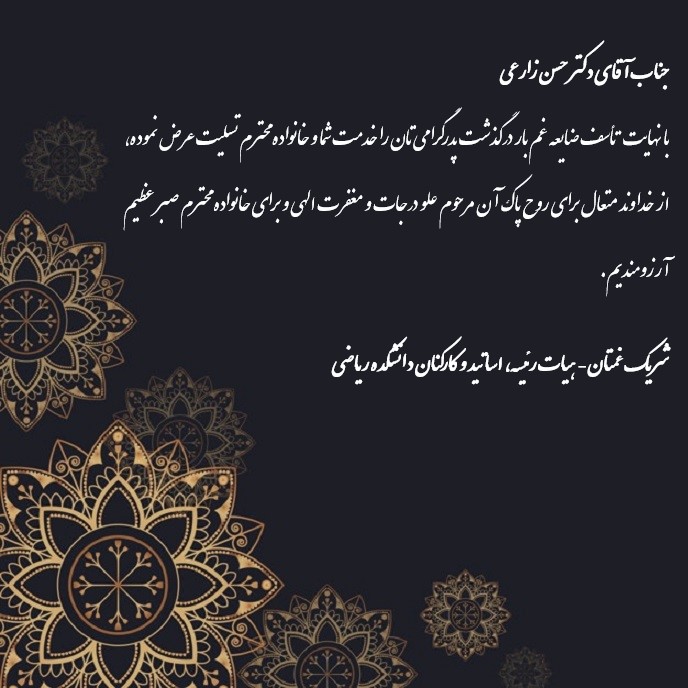 جناب آقای دکتر حسن زارعی
با نهایت تأسف ضایعه غم بار درگذشت پدر گرامی تان را خدمت شما و خانواده محترم تسلیت عرض نموده،
از خداوند متعال برای روح پاک آن مرحوم علو درجات و مغفرت الهی و برای خانواده محترم صبر عظیم
آرزومندیم.
شریک غمتان - هیات رئیسه، اساتید و کارکنان دانشکده ریاضی